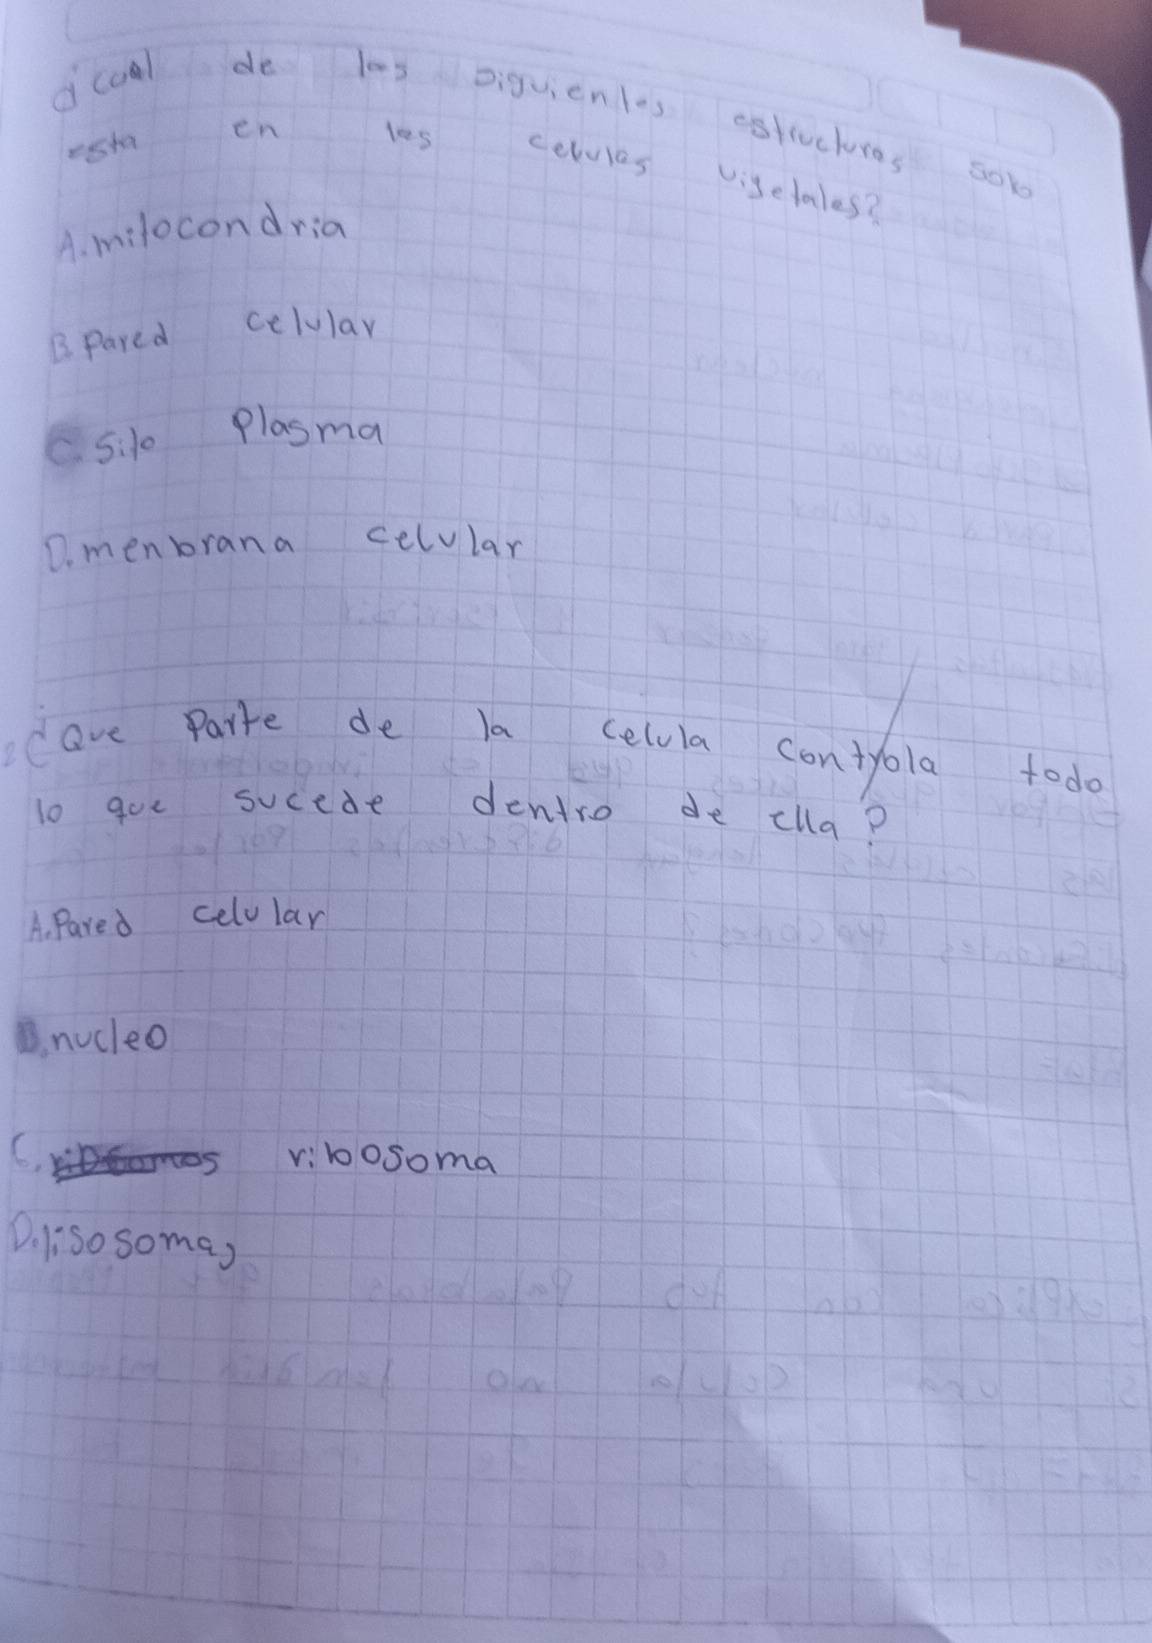 ¿cual de las siguientes estructuras solo
esta en las celulas vigetales?
A. mitocondria
B. Pared celular
C. Sito Plasma
D. menbrana celular
2 ¿Que Parte de la celula controla todo
lo que sucede dentro de ella?
A. Pared celular
B. nucleo
C. ribosoma
D. lisosomas